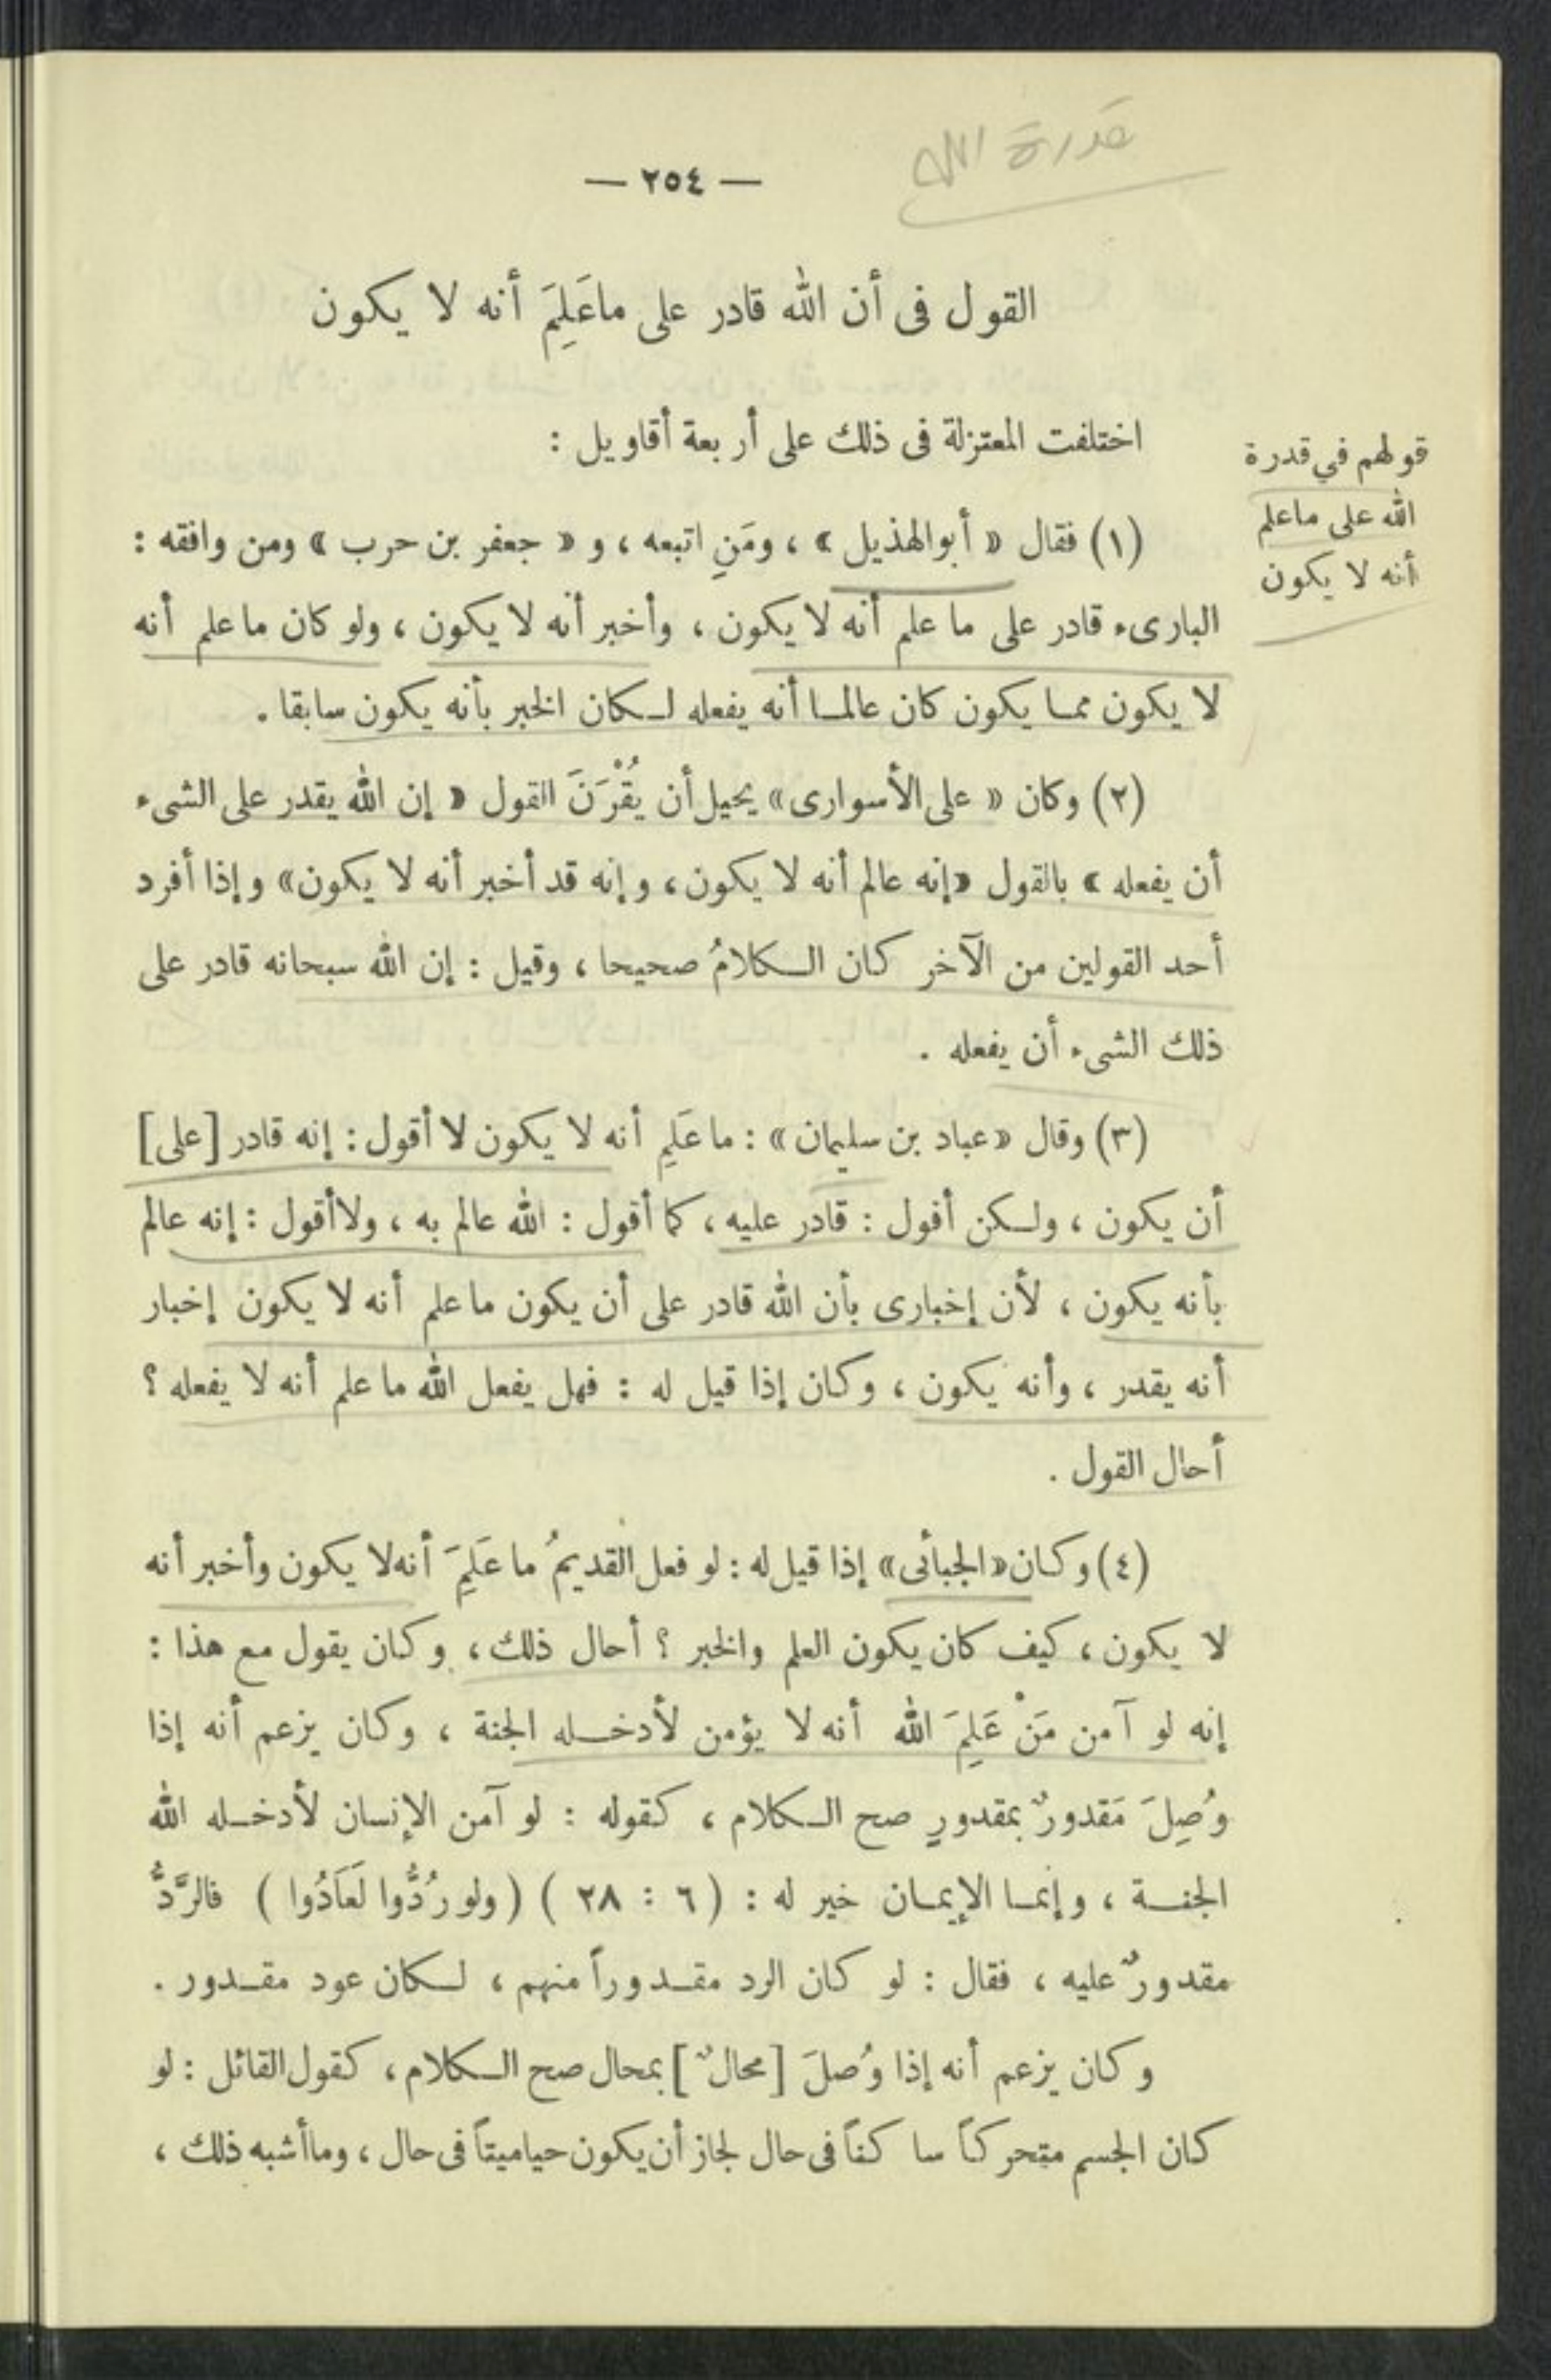 قدرة الله
— ٢٥٤ —
القول فى أن الله قادر على ماعَلِمَ أنه لا يكون
اختلفت المعتزلة فى ذلك على أربعة أقاويل :
قولهم في قدرة
الله على ماعلم
أنه لا يكون
(١) فقال « أبوالهذيل » ، ومَنِ اتبعه ، و « جعفر بن حرب » ومن وافقه :
البارىء قادر على ما علم أنه لا يكون ، وأخبر أنه لا يكون ، ولو كان ما علم أنه
لا يكون ممـا يكون كان عالمـا أنه يفعله لـكان الخبر بأنه يكون سابقا .
(٢) وكان « على الأسوارى » يحيل أن يُقْرَنَ القول « إن الله يقدر على الشىء
أن يفعله » بالقول « إنه عالم أنه لا يكون ، وإنه قد أخبر أنه لا يكون » وإذا أفرد
أحد القولين من الآخر كان الـكلامُ صحيحا ، وقيل : إن الله سبحانه قادر على
ذلك الشىء أن يفعله .
(٣) وقال « عباد بن سليمان » : ما عَلِمَ أنه لا يكون لا أقول : إنه قادر [على]
أن يكون ، ولـكن أقول : قادر عليه ، كما أقول : الله عالم به ، ولا أقول : إنه عالم
بأنه يكون ، لأن إخبارى بأن الله قادر على أن يكون ما علم أنه لا يكون إخبار
أنه يقدر ، وأنه يكون ، وكان إذا قيل له : فهل يفعل الله ما علم أنه لا يفعله ؟
أحال القول .
(٤) وكان « الجبائى » إذا قيل له : لو فعل القديمُ ما عَلِمَ أنه لا يكون وأخبر أنه
لا يكون ، كيف كان يكون العلم والخبر ؟ أحال ذلك ، وكان يقول مع هذا :
إنه لو آمن مَنْ عَلِمَ الله أنه لا يؤمن لأدخـله الجنة ، وكان يزعم أنه إذا
وُصِلَ مَقدورٌ بمقدورٍ صح الـكلام ، كقوله : لو آمن الإنسان لأدخـله الله
الجنـة ، وإنمـا الإيمـان خير له : ( ٦ : ٢٨ ) ( ولو رُدُّوا لَعَادُوا ) فالرَّدُّ
مقدورٌ عليه ، فقال : لو كان الرد مقـدوراً منهم ، لـكان عود مقـدور .
وكان يزعم أنه إذا وُصلَ [محالٌ] بمحال صح الـكلام ، كقول القائل : لو
كان الجسم متحركاً ساكناً فى حال لجاز أن يكون حيا ميتاً فى حال ، وما أشبه ذلك ،